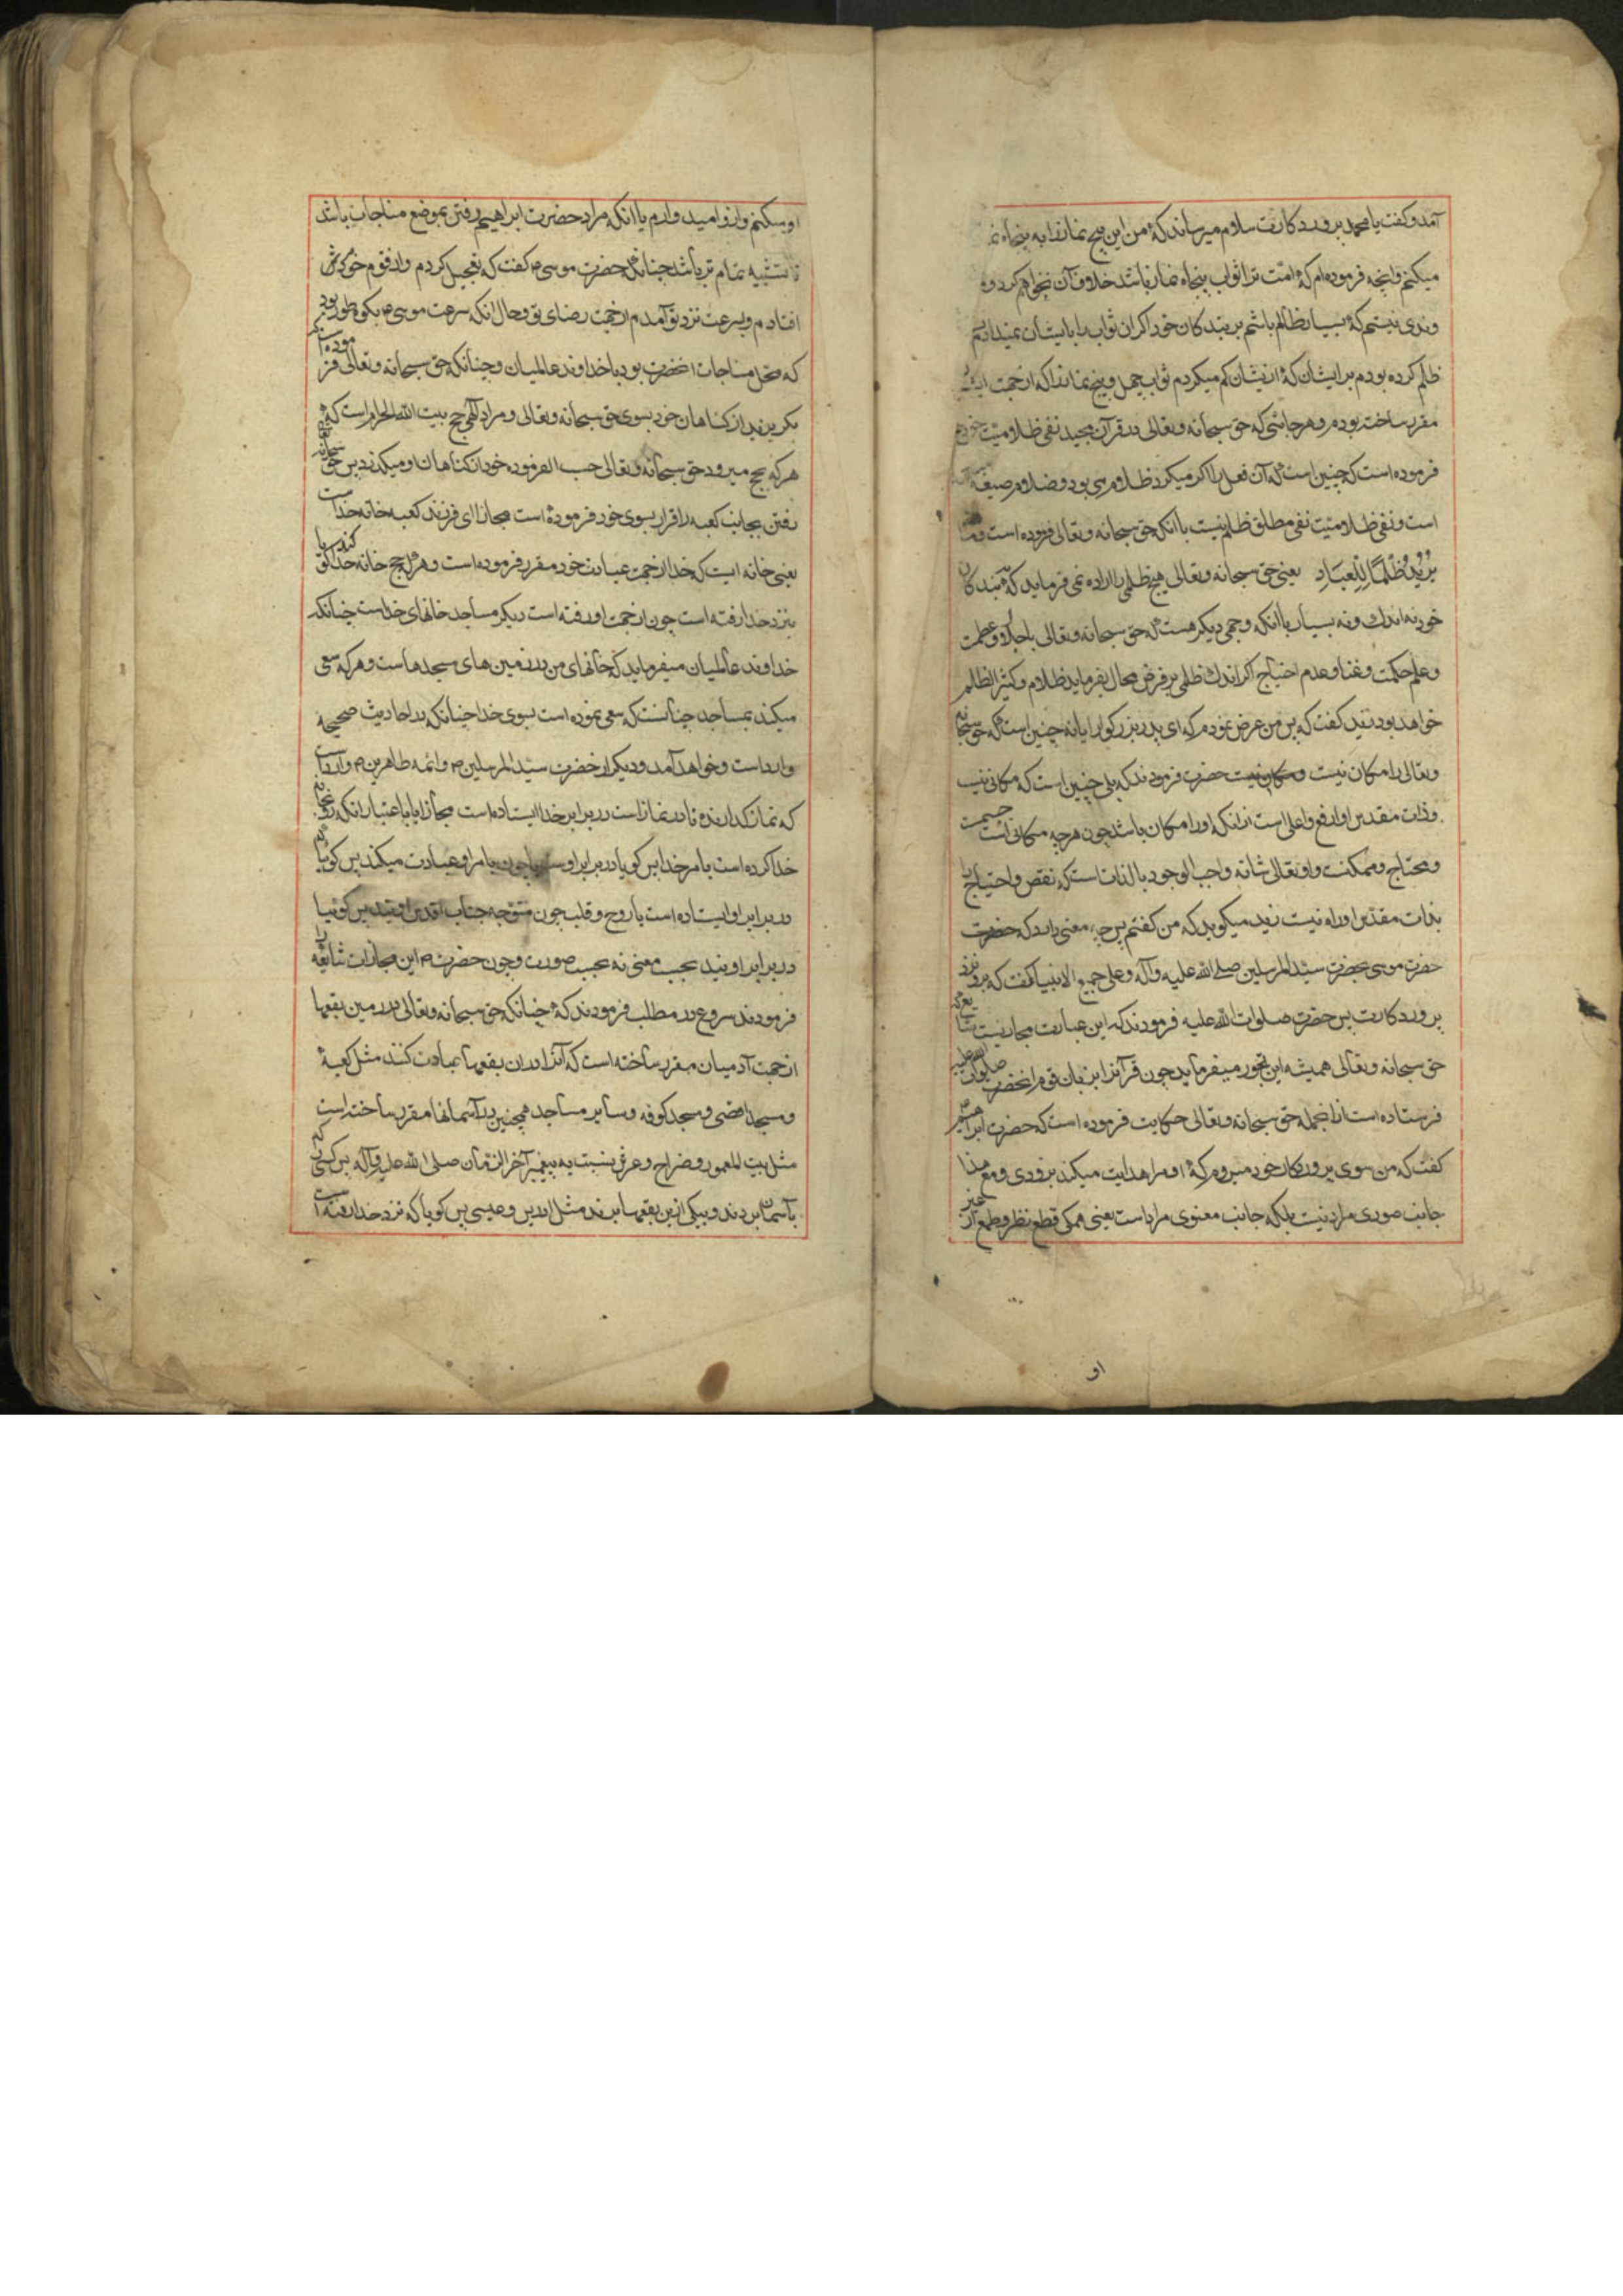 آمد و کفت یا محمد پروردکارت سلام میرساند که من این پنج نماز را به پنجاه نماز
میکنم وانچه فرموده ام که امت ترا ثواب پنجاه نماز باشد خلاف آن نخواهم کرد و
و من نیستم که بسیار ظالم باشم بر بندکان خود اکر ان ثواب را بایشان نمیدادم
ظلم کرده بودم بر ایشان که از یشان کم میکردم ثواب چهل و پنج نماز را که از جهت
مقرر ساخته بودم و هر جائی که حق سبحانه وتعالی در قرآن مجید نفی ظلامیت
فرموده است که چنین است که آن فعل را اکر میکرد ظلام می بود و ظلام صیغه
است و نفی ظلامیت نفی مطلق ظلم نیست با انکه حق سبحانه وتعالی فرموده است
یُرِیدُ ظُلْمًا لِلْعِبَادِ یعنی حق سبحانه وتعالی هیچ ظلمی را اراده نمی فرماید که به بندکان
خود نه اندک و نه بسیار با انکه وجهی دیکر هست که حق سبحانه وتعالی با جلال و عظمت
و علم و حکمت و غنا و عدم احتیاج اکر اندک ظلمی بر فرض محال بفرماید ظلام و کثیر الظلم
خواهد بود زید کفت که پس من عرض نمودم که ای پدر بزرکوار ایا نه چنین است که حق سبحانه
وتعالی را مکان نیست حضرت فرمودند که بلی چنین است که مکانی نیست
وذات مقدس او ارفع واعلی است از انکه اورا مکان باشد چون هرچه مکانی است جسمست
ومحتاج و ممکنست و او تعالی شانه واجب الوجود بالذات است که نقص و احتیاج را
بذات مقدس او راه نیست زید میکوید که من کفتم پس چه معنی دارد که
حضرت موسی بحضرت سید المرسلین صلی الله علیه وآله وعلی جمیع الانبیا کفت که برو نزد
پروردکارت پس حضرت صلوات الله علیه فرمودند که این عبارت مجازیست
حق سبحانه وتعالی همیشه این نحو میفرماید چون قرآنرا بزبان قوم انحضرت صلوات الله علیه
فرستاده است از انجمله حق سبحانه وتعالی حکایت فرموده است که حضرت ابراهیم
کفت که من سوی پروردکار خود میروم که او مرا هدایت میکند بزودی ومع هذا
جانب صوری مراد نیست بلکه جانب معنوی مراد است یعنی همکی قطع نظر و طمع از غیر
او
او میکنم و ازو امید وارم یا انکه مراد حضرت ابراهیم رفتن بموضع مناجات باشد
تا تشبیه تمام تر باشد چنانکه حضرت موسی ع کفت که تعجیل کردم و از قوم خود پیش
افتادم و بسرعت نزد تو آمدم از جهت رضای تو و حال انکه سرعت موسی ع بکوه طور بود
که محل مناجات انحضرت بود با خداوند عالمیان وچنانکه حق سبحانه وتعالی فرموده است
بکریزید از کناهان خود بسوی حق سبحانه وتعالی ومراد الهی حج بیت الله الحرام است که
هر که بحج میرود حق سبحانه وتعالی حسب الفرموده خود از کناهان او میکذرد پس حق سبحانه
رفتن بجانب کعبه را فرار بسوی خود فرموده است مجازا ای فرزند کعبه خانه خداست
یعنی خانه ایست که خدا از جهت عبادت خود مقرر فرموده است و هر که حج خانه خدا کند کویا
بنزد خدا رفته است چون از جهت او رفته است دیکر مساجد خانهای خداست چنانکه
خداوند عالمیان میفرماید که خانهای من در زمین های مسجدها است وهر که سعی
میکند بمساجد چنانست که سعی نموده است بسوی خدا چنانکه در احادیث صحیحه
وارد است و خواهد آمد و دیکر از حضرت سید المرسلین ص وائمه طاهرین ع وارد است
که نماز کذارنده تا در نماز است در برابر خدا ایستاده است مجازا یا باعتبار انکه رو بخانه
خدا کرده است بامر خدا پس کویا در برابر او چون بامر او عبادت میکند پس کویا
در برابر او ایستاده است یا روح و قلب چون متوجه جناب اقدس اویند پس کوئیا
در برابر اویند بحسب معنی نه بحسب صورت و چون حضرت ع این مجازات شایعه را
فرمودند شروع در مطلب فرمودند که چنانکه حق سبحانه وتعالی در زمین بقعها
از جهت آدمیان مقرر ساخته است که آنرا در ان بقعها عبادت کنند مثل کعبه
ومسجد اقصی ومسجد کوفه وسایر مساجد همچنین در آسمانها مقرر ساخته است
مثل بیت المعمور و ضراح و عرش نسبت به پیغمبر آخر الزمان صلی الله علیه وآله پس کسی را که
بآسمان بردند و بیکی ازین بقعها بردند مثل ادریس وعیسی پس کویا که نزد خدا رفته است